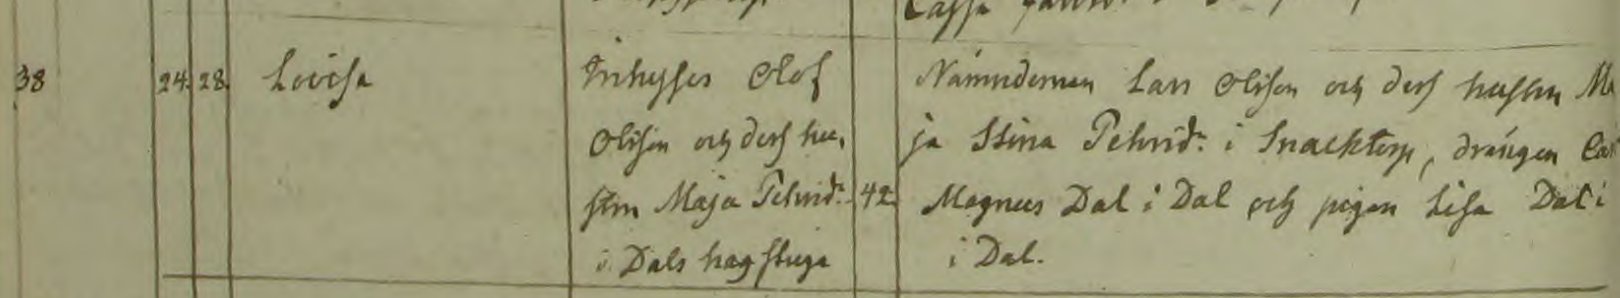 38 24. 28. Lovisa Inhysses Olof Nämndeman Lars Olsson och dess hustru Ma
Olsson och dess hu, ja Stina Pehrsdr. i Snacktorp, drängen Carl
stru Maja Pehrsdr. 42 Magnus Dal i Dal och pigan Lisa Dal i
i Dals hagstuga i Dal.